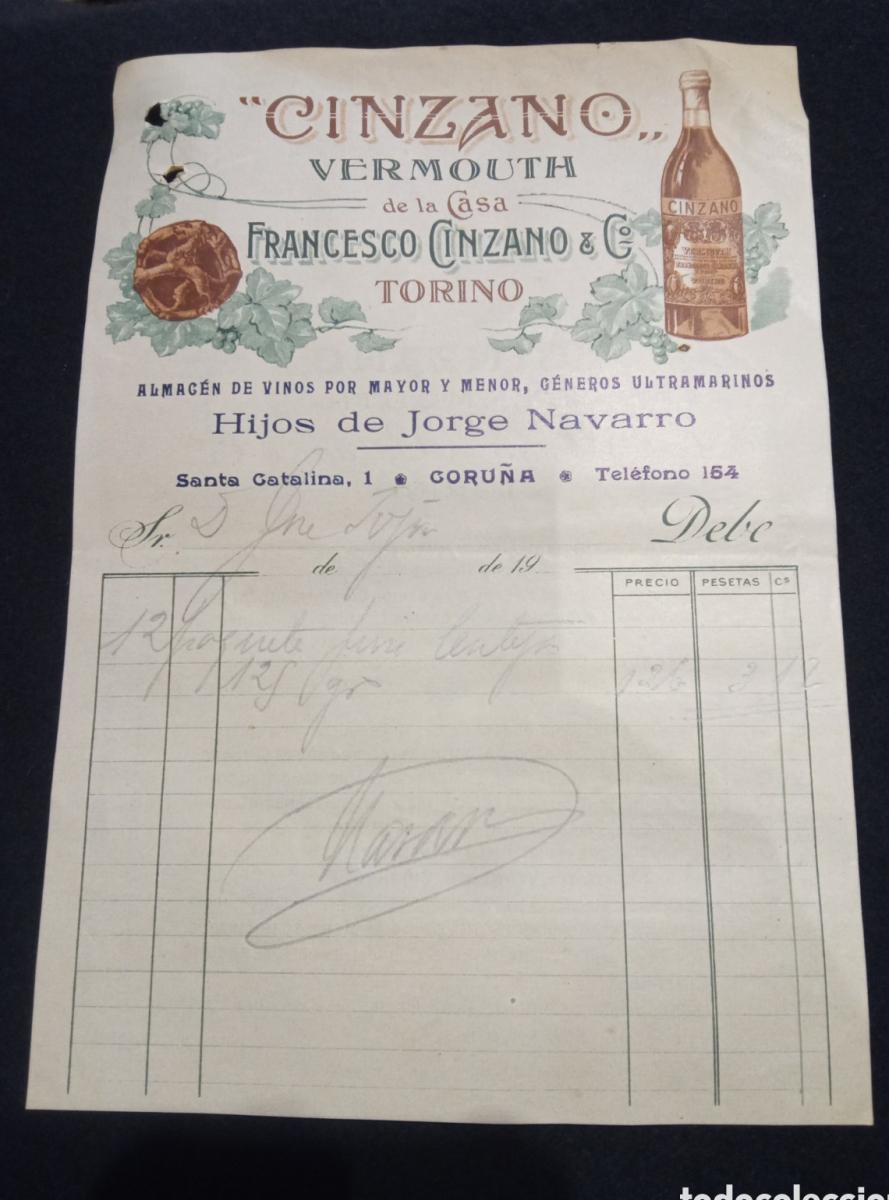 "CINZANO„
VERMOUTH
de la Casa
FRANCESCO CINZANO & Co
TORINO
CINZANO
ALMACÉN DE VINOS POR MAYOR Y MENOR, GÉNEROS ULTRAMARINOS
Hijos de Jorge Navarro
Santa Catalina, 1 CORUÑA Teléfono 154
Sr. D Debe
de de 19
PRECIO PESETAS Cs
12
125 gr 3 12
todocoleccion